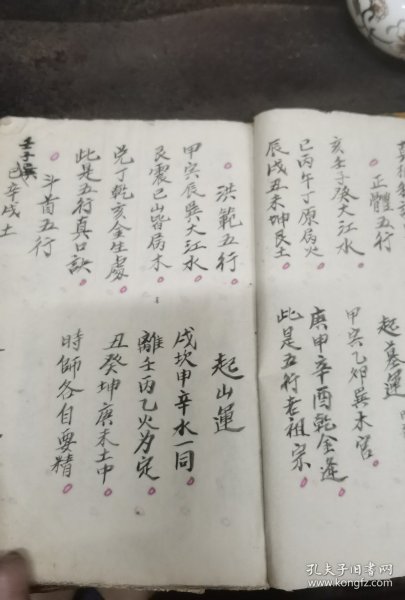 正體五行
起墓運
亥壬子癸大江水
甲寅乙卯巽木宮
巳丙午丁原屬火
庚申辛酉乾金逢
辰戌丑未坤艮土
此是五行老祖宗
洪範五行
起山運
甲寅辰巽大江水
戌坎申辛水一同
艮震巳山皆屬木
離壬丙乙火為定
兌丁乾亥金生處
丑癸坤庚未土中
此是五行真口訣
時師各自要精
斗首五行
壬子巽巳辛戌土
孔夫子旧书网
https://www.kongfz.com/